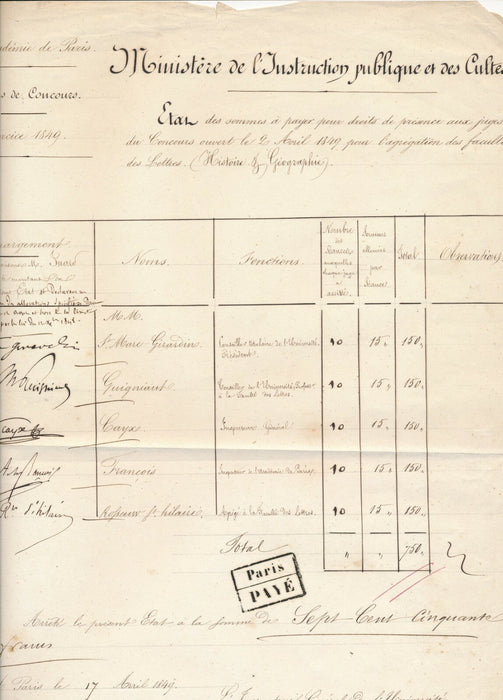 démie de Paris.
Ministère de l'Instruction publique et des Cultes
s de Concours.
Etat des sommes à payer pour droits de présence aux juges
rcice 1849.
du Concours ouvert le 2 Avril 1849 pour l'agrégation des facultés
des Lettres. (Histoire & Géographie).
argement
Noms.
Fonctions.
Nombre des Séances auxquelles chaque juge a assisté.
Sommes allouées par Séance.
Total.
Observations.
M.M.
St Marc Girardin.
Conseiller titulaire de l'Université, Président.
10
15 "
150 "
Guigniaut
Conseiller de l'Université, Profess. à la faculté des Lettres.
10
15 "
150 "
Cayx
Inspecteur Général.
10
15 "
150 "
François
Inspecteur de l'Académie de Paris.
10
15 "
150 "
Rosseuw St hilaire.
Agrégé à la faculté des Lettres.
10
15 "
150 "
Total
"
"
750 "
Paris
PAYÉ
Arrêté le présent Etat à la somme de Sept Cent Cinquante
francs
Paris le 17 Avril 1849.